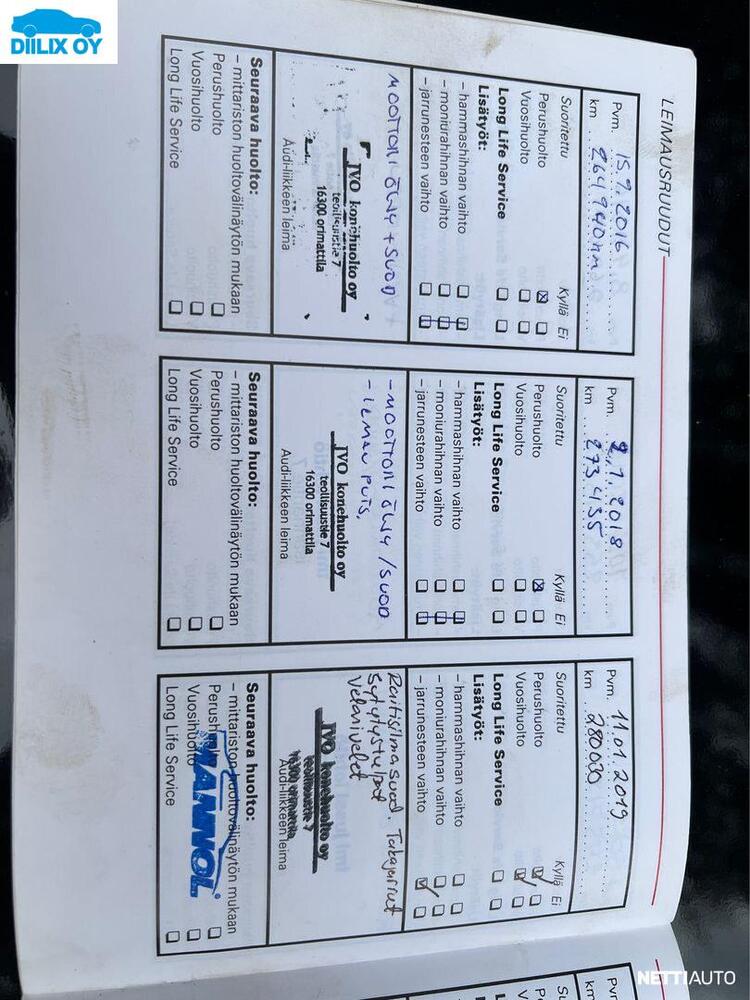 DIILIX OY
LEIMAUSRUUDUT
Pvm. 15.9.2016
km 264940
Suoritettu Kyllä Ei
Perushuolto
Vuosihuolto
Long Life Service
Lisätyöt:
– hammashihnan vaihto
– moniurahihnan vaihto
– jarrunesteen vaihto
MOOTTORI ÖLJY + SUOD
IVO konehuolto oy
teollisuustie 7
16300 orimattila
Audi-liikkeen leima
Seuraava huolto:
– mittariston huoltovälinäytön mukaan
Perushuolto
Vuosihuolto
Long Life Service
Pvm. 2.1.2018
km 273435
Suoritettu Kyllä Ei
Perushuolto
Vuosihuolto
Long Life Service
Lisätyöt:
– hammashihnan vaihto
– moniurahihnan vaihto
– jarrunesteen vaihto
- MOOTTORI ÖLJY / SUOD
IVO konehuolto oy
teollisuustie 7
16300 orimattila
Audi-liikkeen leima
Seuraava huolto:
– mittariston huoltovälinäytön mukaan
Perushuolto
Vuosihuolto
Long Life Service
Pvm. 11.01.2019
km 280000
Suoritettu Kyllä Ei
Perushuolto
Vuosihuolto
Long Life Service
Lisätyöt:
– hammashihnan vaihto
– moniurahihnan vaihto
– jarrunesteen vaihto
Raitisilmasuod. Takajarrut
Sytytystulpat
IVO konehuolto oy
teollisuustie 7
16300 orimattila
Audi-liikkeen leima
Seuraava huolto:
– mittariston huoltovälinäytön mukaan
Perushuolto
Vuosihuolto
Long Life Service
MANNOL
Pvm
km
NETTIAUTO